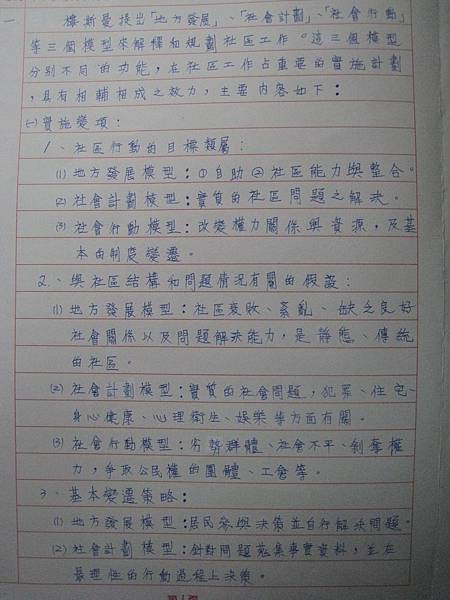 一
樓斯曼提出「地方發展」、「社會計劃」、「社會行動」
等三個模型來解釋和規劃社區工作。這三個模型
分別不同的功能,在社區工作占重要的實施計劃
,具有相輔相成之效力,主要內容如下:
㈠實施變項:
1、社區行動的目標類屬:
⑴地方發展模型:①自助②社區能力與整合。
⑵社會計劃模型:實質的社區問題之解決。
⑶社會行動模型:改變權力關係與資源,及基
本的制度變遷。
2、與社區結構和問題情況有關的假設:
⑴地方發展模型:社區衰敗、紊亂、缺乏良好
社會關係以及問題解決能力,是靜態、傳統
的社區。
⑵社會計劃模型:實質的社會問題,犯罪、住宅、
身心健康、心理衛生、娛樂等方面有關。
⑶社會行動模型:劣勢群體、社會不平、剝奪權
力,爭取公民權的團體、工會等。
3、基本變遷策略:
⑴地方發展模型:居民參與決策並自行解決問題。
⑵社會計劃模型:針對問題蒐集事實資料,並在
最理性的行動過程上決策。